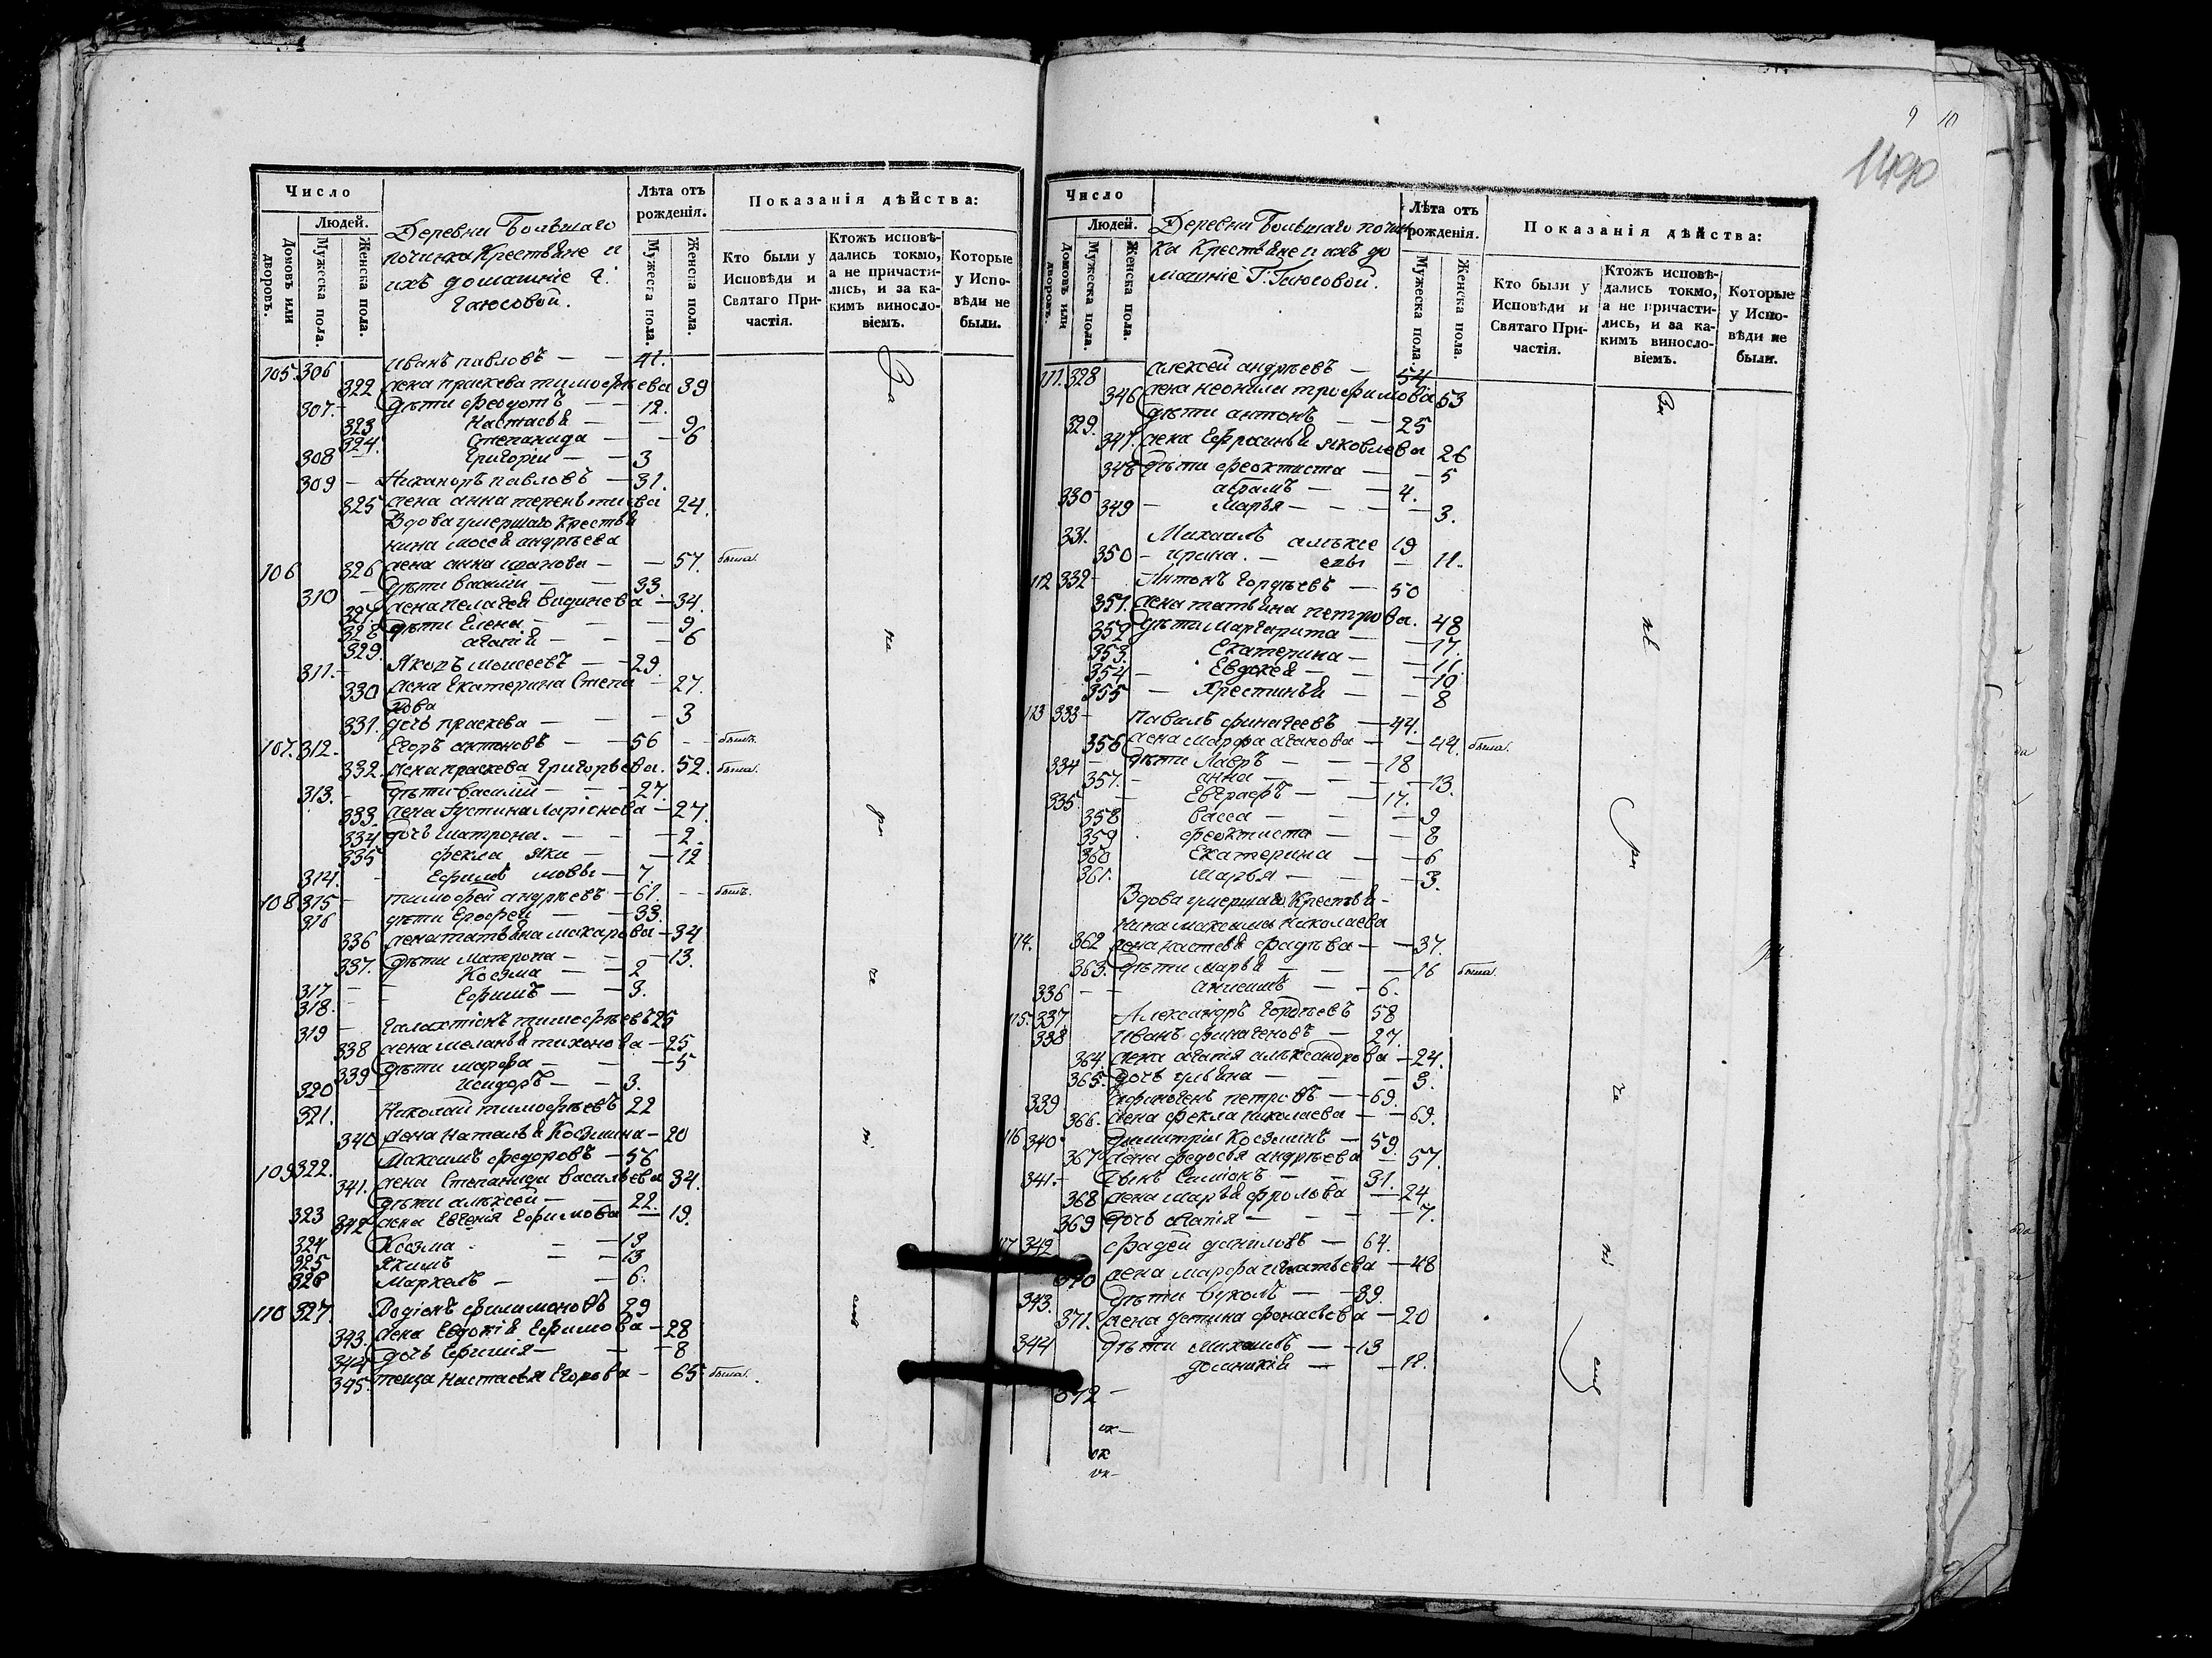 9 10
1490
Число
Людей.
Домовъ или дворовъ.
Мужеска пола.
Женска пола.
Деревни Большаго
починка Крестьяне и
ихъ домашніе Г.
Гаюсовой.
Лѣта отъ рожденія.
Мужеска пола.
Женска пола.
Показанія дѣйства:
Кто были у Исповѣди и Святаго Причастія.
Ктожъ исповѣдались токмо, а не причастились, и за какимъ винословіемъ.
Которые у Исповѣди не были.
105. 306 Иванъ павловъ — 41.
322 жена праскева тимофѣева 39
307. дѣти федотъ — 12.
323 Настасья — 9
324. Степанида — 6
308 Григорій — 3
309 — Никаноръ павловъ — 31.
325 жена анна терентиева 24.
Вдова умершаго Крестья
нина Моисея андрѣева
106 326 жена анна — 57. была.
310 — дѣти василій — 33.
327. жена пелагея — 34.
328 дѣти Елена — 9
329. агапія — 6
311. — Яковъ моисеевъ — 29.
330 жена Екатерина Степа — 27.
нова
331. дочь праскева — 3
107. 312. Егоръ антоновъ — 56 — былъ.
332. жена праскева Григорьева. 52. была.
313. — дѣти василій — 27.
333. жена Устина Ларіонова — 27.
334. дочь матрона. — 2.
335 фекла яки — 12
314. Ефимъ мовы — 7.
108 315 — тимофей андрѣевъ — 61. — былъ.
316 дѣти Ерофей — 33.
336 жена татьяна макарова — 34
337. дѣти матрона — 13.
317 — Козма — 2
318. — Ефимъ — 3.
319 — Галактіонъ тимофѣевъ 25
338 жена меланья тихонова — 25
339 дѣти марфа — 5
320 — исидоръ — 3.
321. Николай тимофѣевъ 22
340 жена наталья Козмина — 20
109 322. Максимъ федоровъ — 56
341. жена Степанида васильева 34.
323 дѣти алексей — 22.
342 жена Евгенія Ефимова — 19.
324 Козма — 19
325 Якимъ — 13
326 Маркелъ — 6.
110 327. Родіонъ филимоновъ 29
343. жена Евдокія Ефимова — 28
344 дочь — 8
345. теща настасья Егорова — 65 была.
За
не
ра
че
ні
емъ
Число
Людей.
Домовъ или дворовъ.
Мужеска пола.
Женска пола.
Деревни Большаго почин
ка Крестьяне и ихъ до
машніе Г. Гаюсовой.
Лѣта отъ рожденія.
Мужеска пола.
Женска пола.
Показанія дѣйства:
Кто были у Исповѣди и Святаго Причастія.
Ктожъ исповѣдались токмо, а не причастились, и за какимъ винословіемъ.
Которые у Исповѣди не были.
111. 328 алексей андрѣевъ — 54
346 жена неонила трофимова 53
329. дѣти антонъ — 25
347. жена Ефросинья яковлева 26
348 дѣти феоктиста — 5
330 — абрамъ — 4.
349 — марья — 3.
331. Михаилъ алѣксе 19
350 — ирина. — евы — 11.
112 332 — Антонъ Гордѣевъ — 50
351. жена татьяна петрова. 48
352 дѣти Маргарита — 17.
353. Екатерина — 11.
354 — Евдокея — 10
355 — Хрестинья — 8
113 333 — павилъ финагеевъ — 44.
356 жена марфа — 44. была.
334 — дѣти Лавръ — 18
357. — анна — 13.
335. — Евграфъ — 17.
358 васса — 9
359 феоктиста — 8
360 Екатерина — 6
361. марья — 3.
Вдова умершаго Крестья-
нина максима николаева
114. 362 жена настасья фадѣва — 37.
363. дѣти марья — 16 была.
336 — анисимъ — 6.
115. 337 Александръ Гордѣевъ 58
338 Иванъ финагеновъ — 27.
364. жена агапія алѣксандрова — 24.
365. дочь ульяна — 3.
339 афиногенъ петровъ — 69.
366. жена фекла николаева — 69.
116 340 Димитрій Козминъ — 59.
367 жена федосья андрѣева — 57.
341. — Сынъ Симіонъ — 31.
368 жена марья фролова — 24
369 дочь агапія — 7.
117 342 фадей даниловъ — 64.
370 жена марфа игнатьева — 48
343. дѣти вуколъ — 39.
371. жена устина фонасьева — 20
344 дѣти михаилъ — 13
372 — домникія — 12.
За
не
ра
че
ні
емъ